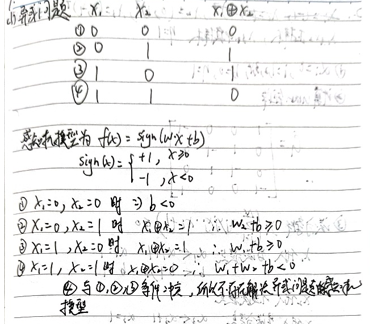 异或问题 x₁ x₂ x₁⊕x₂
① 0 0 0
② 0 1 1
③ 1 0 1
④ 1 1 0
感知机模型为 f(x) = sign(w·x+b)
sign(x) = { +1, x≥0
-1, x<0
① x₁=0, x₂=0 时 ⇒ b<0
② x₁=0, x₂=1 时 x₁⊕x₂=1 ∴ w₂+b≥0
③ x₁=1, x₂=0 时 x₁⊕x₂=1 ∴ w₁+b≥0
④ x₁=1, x₂=1 时 x₁⊕x₂=0 ∴ w₁+w₂+b<0
④ 与 ①,②,③ 矛盾, 所以不存在解决异或问题的感知机
模型